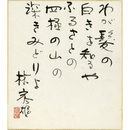 わが髪の
白きを知るや
ふるさとの
四極の山の
深きみどりよ